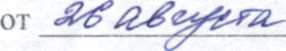 от 26 августа